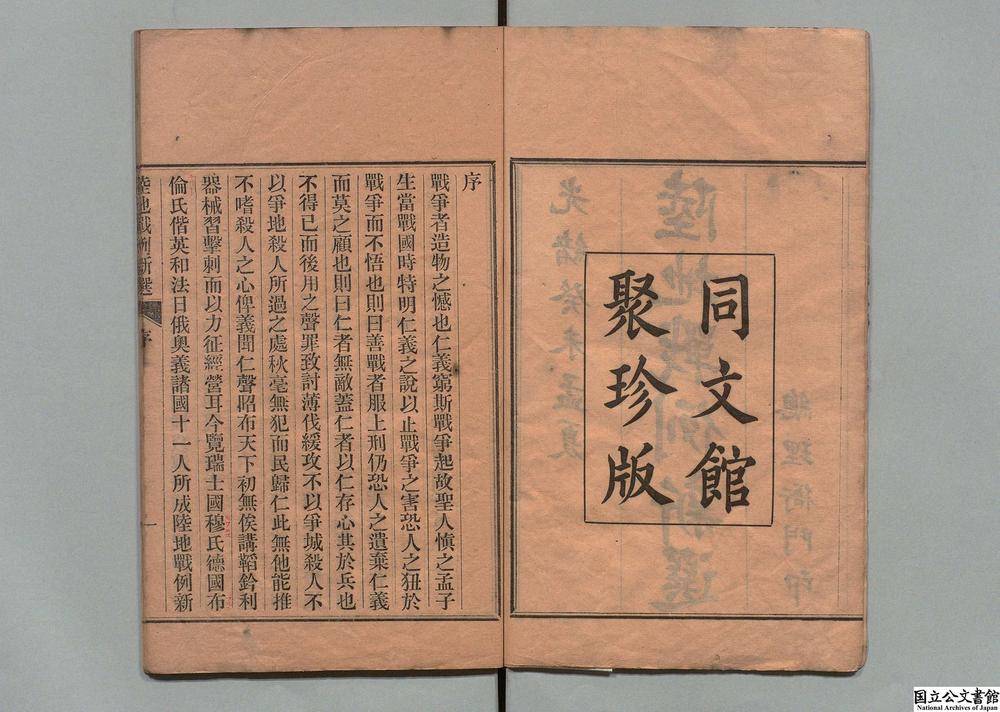 同文館
聚珍版
總理衙門印
陸地戰例新選
光緒癸未孟夏
序
戰爭者造物之憾也仁義窮斯戰爭起故聖人慎之孟子
生當戰國時特明仁義之說以止戰爭之害恐人之狃於
戰爭而不悟也則曰善戰者服上刑仍恐人之遺棄仁義
而莫之顧也則曰仁者無敵蓋仁者以仁存心其於兵也
不得已而後用之聲罪致討薄伐緩攻不以爭城殺人不
以爭地殺人所過之處秋毫無犯而民歸仁此無他能推
不嗜殺人之心俾義聞仁聲昭布天下初無俟講韜鈐利
器械習擊刺而以力征經營耳今覽瑞士國穆氏德國布
倫氏偕英和法日俄奧義諸國十一人所成陸地戰例新
陸地戰例新選
序
一
国立公文書館
National Archives of Japan